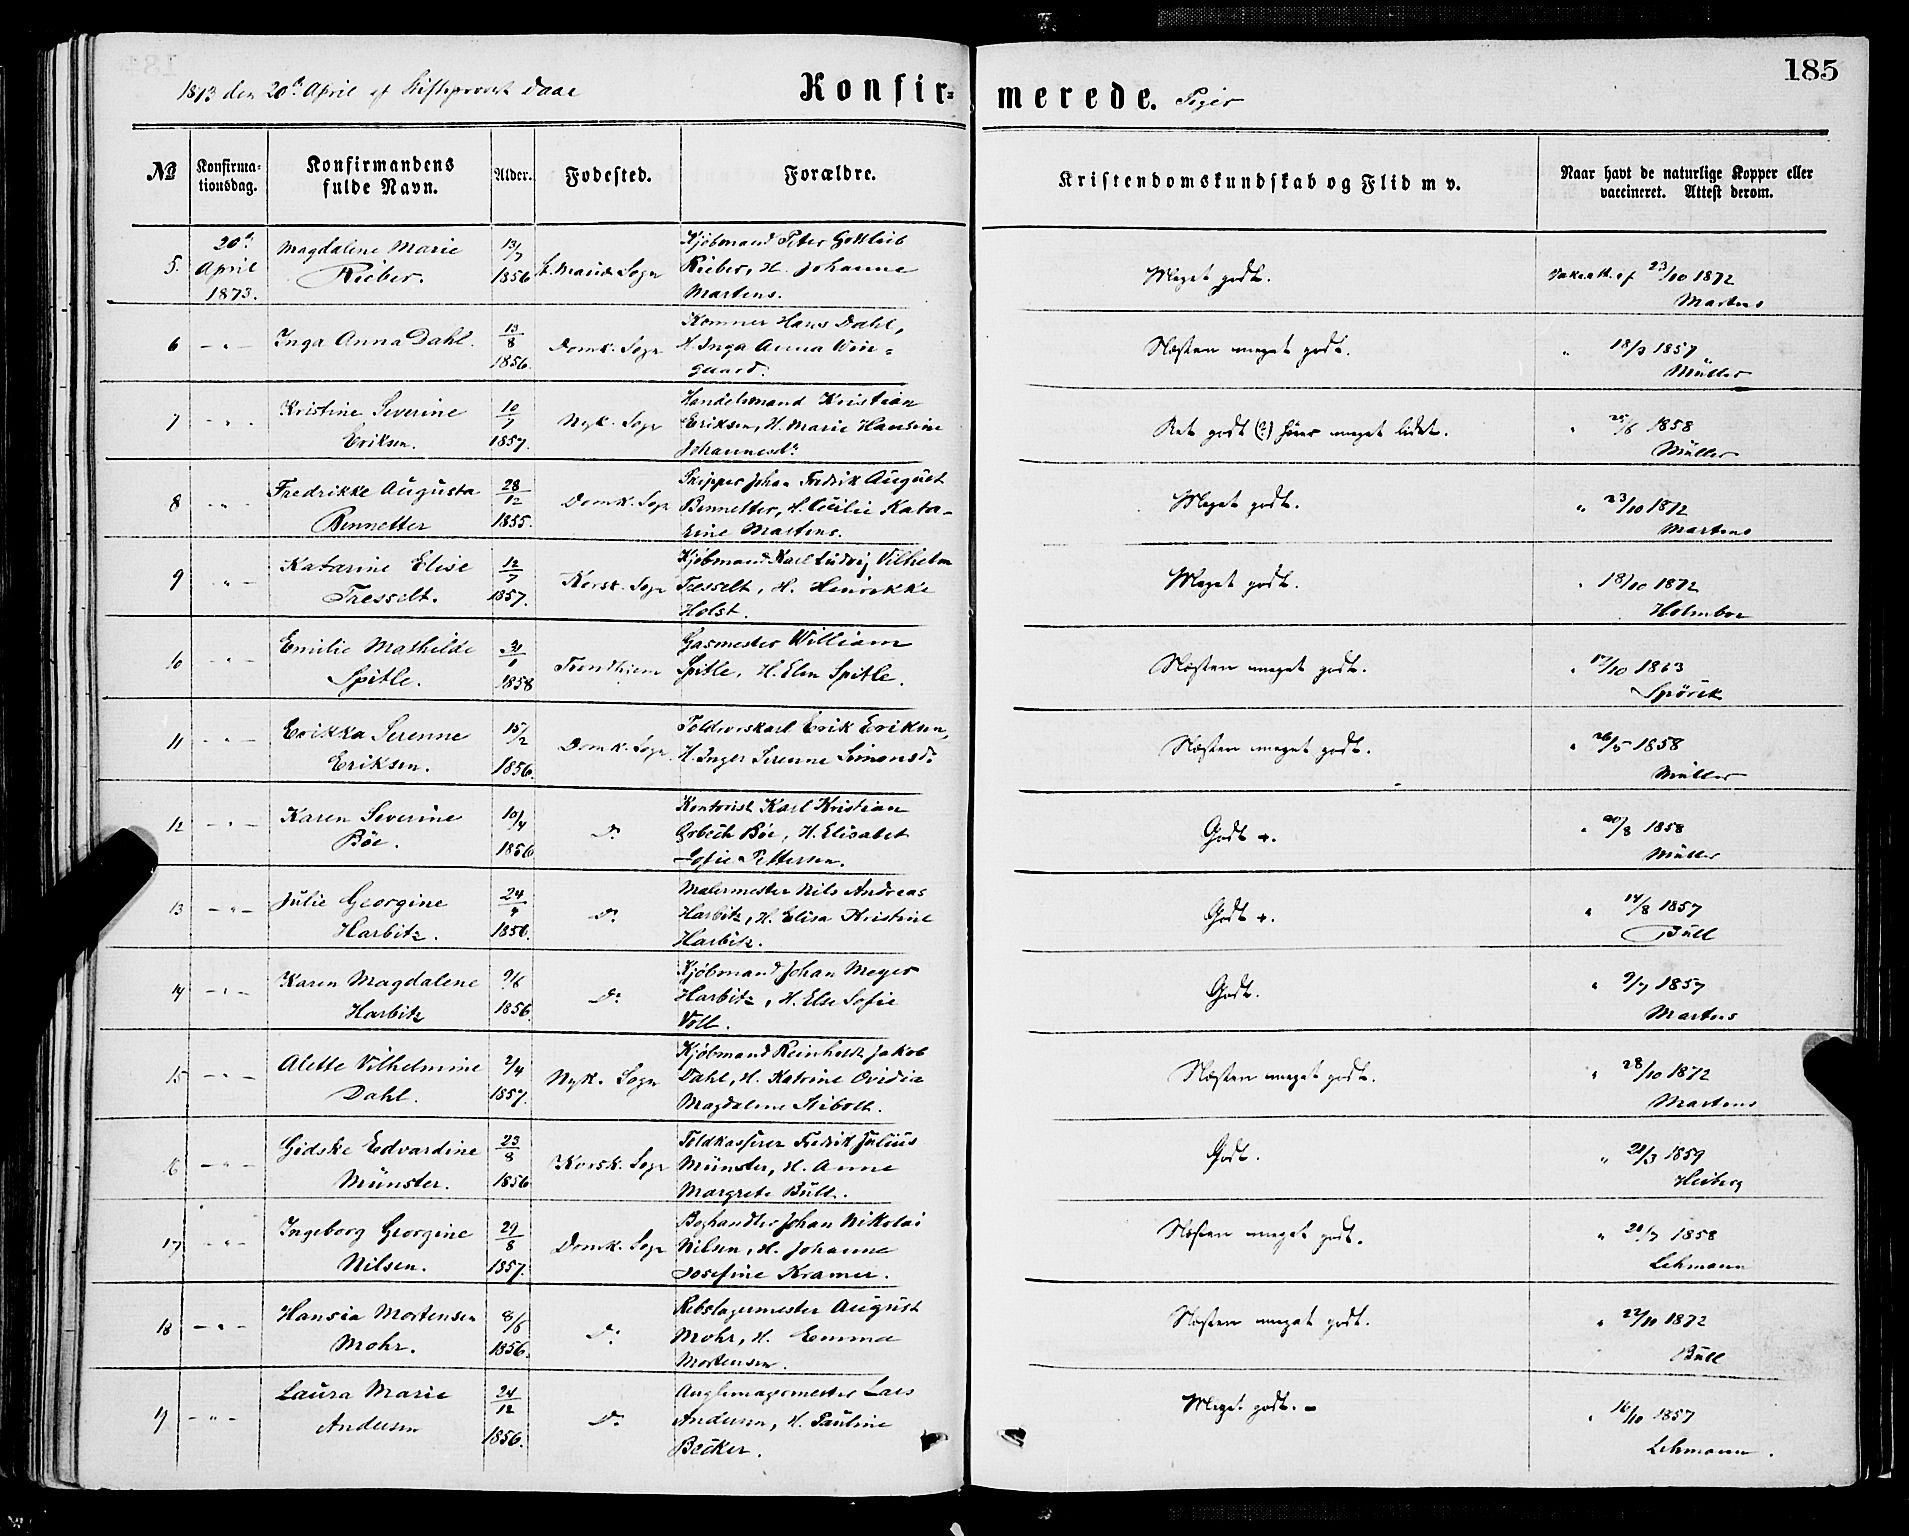 185
1873 den 20de April af Stiftsprovst Daae
Konfir-
merede. Piger
№
Konfirma-
tionsdag.
Konfirmandens
fulde Navn.
Alder.
Fødested.
Forældre.
Kristendomskundskab og Flid m v.
Naar havt de naturlige Kopper eller
vaccineret. Attest derom.
5. 20de April 1873. Magdalene Marie Rieber. 13/7 1856 Sogn Kjøbmand Peter Gottlieb Rieber, H. Johanne Martens. Meget godt. 23/10 1872 Martens
6 - " - Inga Anna Dahl. 13/8 1856. Domk. Sogn Hans Dahl, H. Inga Anna Win-gaard. Næsten meget godt. " 18/9 1857 Müller
7 - " - Kristine Severine Eriksen. 10/7 1857. Nyk. Sogn Handelsmand Kristian Eriksen, H. Marie Hansine Johannesdr. Ret godt (?) hører meget lidet. " 25/6 1858 Müller
8 - " - Fredrikke Augusta Bennetter 28/12 1855. Domk. Sogn Skipper Johan Fredrik August Bennetter, H. Cecilie Kata-rine Martens. Meget godt. " 23/10 1872 Martens
9 - " - Katarine Elise Tresselt. 12/7 1857. Korsk. Sogn Kjøbmand Karl Ludvig Vilhelm Tresselt, H. Henrikke Holst. Meget godt. " 18/10 1872 Holmboe
10 - " - Emilie Mathilde Spitle. 31/1 1858 Trondhjem Gasmester William Spitle, H. Elen Spitle. Næsten meget godt. " 17/10 1863 Spörck
11 - " - Erikka Serenne Eriksen. 15/2 1856. Domk. Sogn. Erik Eriksen, H. Inger Serenne Simonsdr. Næsten meget godt. " 26/5 1858 Müller
12 - " - Karen Severine Böe. 10/4 1856 Do Kontorist Karl Kristian Grbech Böe, H. Elisabet Sofie Pettersen. Godt +. " 20/8 1858 Müller
13 - " - Julie Georgine Harbitz. 24/4 1856. Do Malermester Nils Andreas Harbitz, H. Elisa Kristine Harbitz. Godt +. " 14/8 1857 Bull
14 - " - Karen Magdalene Harbitz 9/6 1856. Do Kjøbmand Johan Meyer Harbitz, H. Else Sofie Voll. Godt. " 9/7 1857 Martens
15 - " - Alette Vilhelmine Dahl. 2/4 1857. Nyk. Sogn Kjøbmand Reinholdt Jakob Dahl, H. Katrine Ovidia Magdalene Stibolt. Næsten meget godt. " 28/10 1872 Martens
16 - " - Gidske Edvardine Münster. 23/8 1856 Korsk. Sogn Toldkasserer Fredrik Julius Münster, H. Anne Margrete Bull. Godt. " 21/3 1859 Heiberg
17 - " - Ingeborg Georgine Nilsen. 29/8 1857. Domk. Sogn Boghandler Johan Nikolai Nilsen, H. Johanne Josefine Kramer. Næsten meget godt. " 20/7 1858 Lehmann
18 - " - Hansia Mortensen Mohr. 8/6 1856. Do Rebslagermester August Mohr, H. Emma Mortensen. Næsten meget godt. " 22/10 1872 Bull
19 - " - Laura Marie Andersen 24/12 1856. Do Lars Andersen, H. Pauline Becker. Meget godt. - " 16/10 1857 Lehmann.